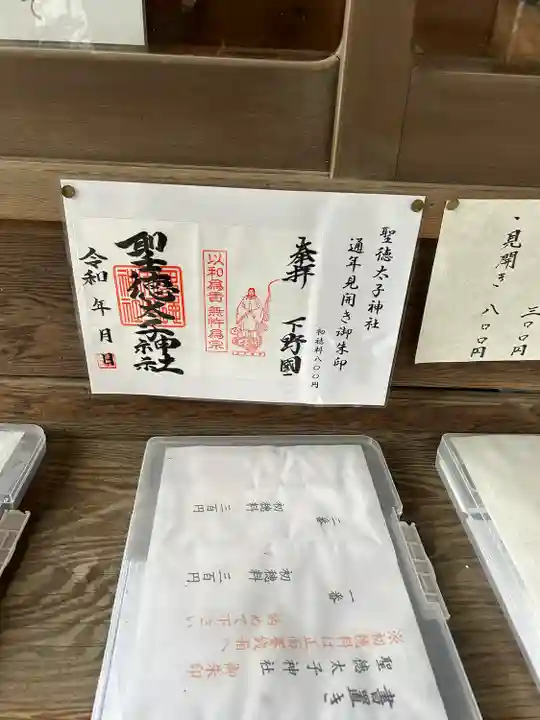 聖徳太子神社
通年見開き御朱印
初穂料八〇〇円
奉拝
下野國
以和為貴 無忤為宗
聖徳太子神社
令和 年 月 日
見開き
三〇〇円
八〇〇円
書置き
聖徳太子神社
御朱印
※初穂料は正面賽銭箱へ
納めて下さい
一番
初穂料 三百円
二番
初穂料 三百円